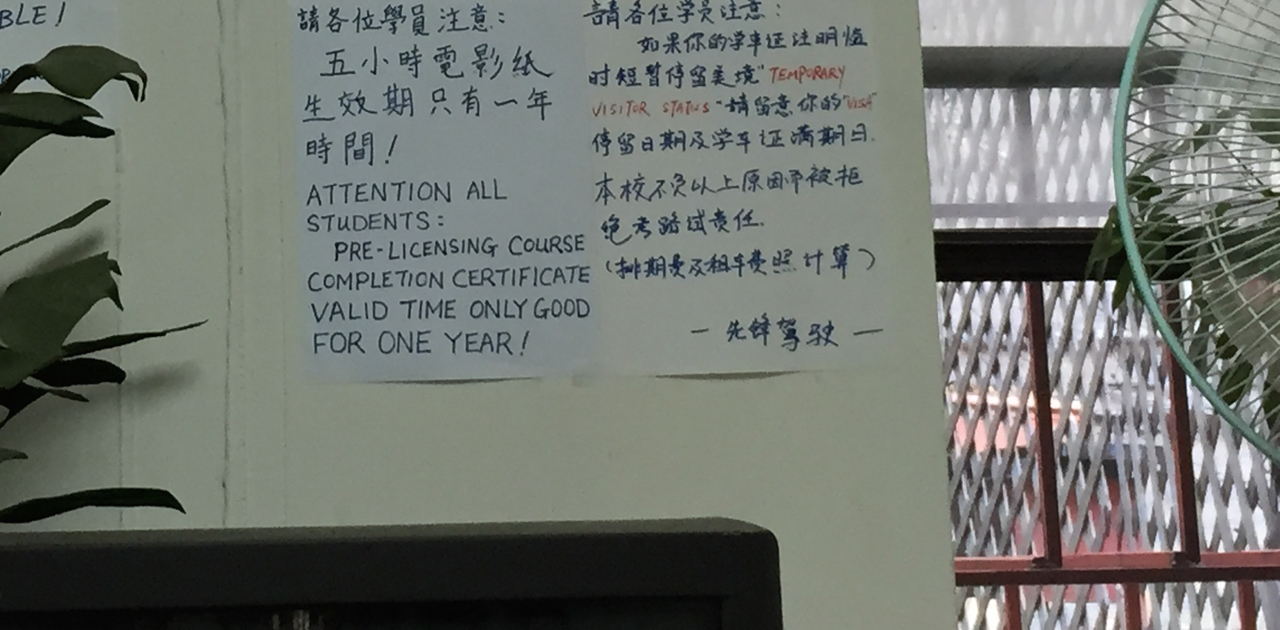 BLE!
請各位學員注意：
五小時電影紙
生效期只有一年
時間！
ATTENTION ALL
STUDENTS:
PRE-LICENSING COURSE
COMPLETION CERTIFICATE
VALID TIME ONLY GOOD
FOR ONE YEAR!
請各位学员注意：
如果你的学车证注明临
时短暫停留美境"TEMPORARY
VISITOR STATUS"請留意你的"VISA"
停留日期及学车证满期日.
本校不负以上原因而被拒
绝考路试责任.
(排期费及租车费照计算)
— 先鋒驾驶 —